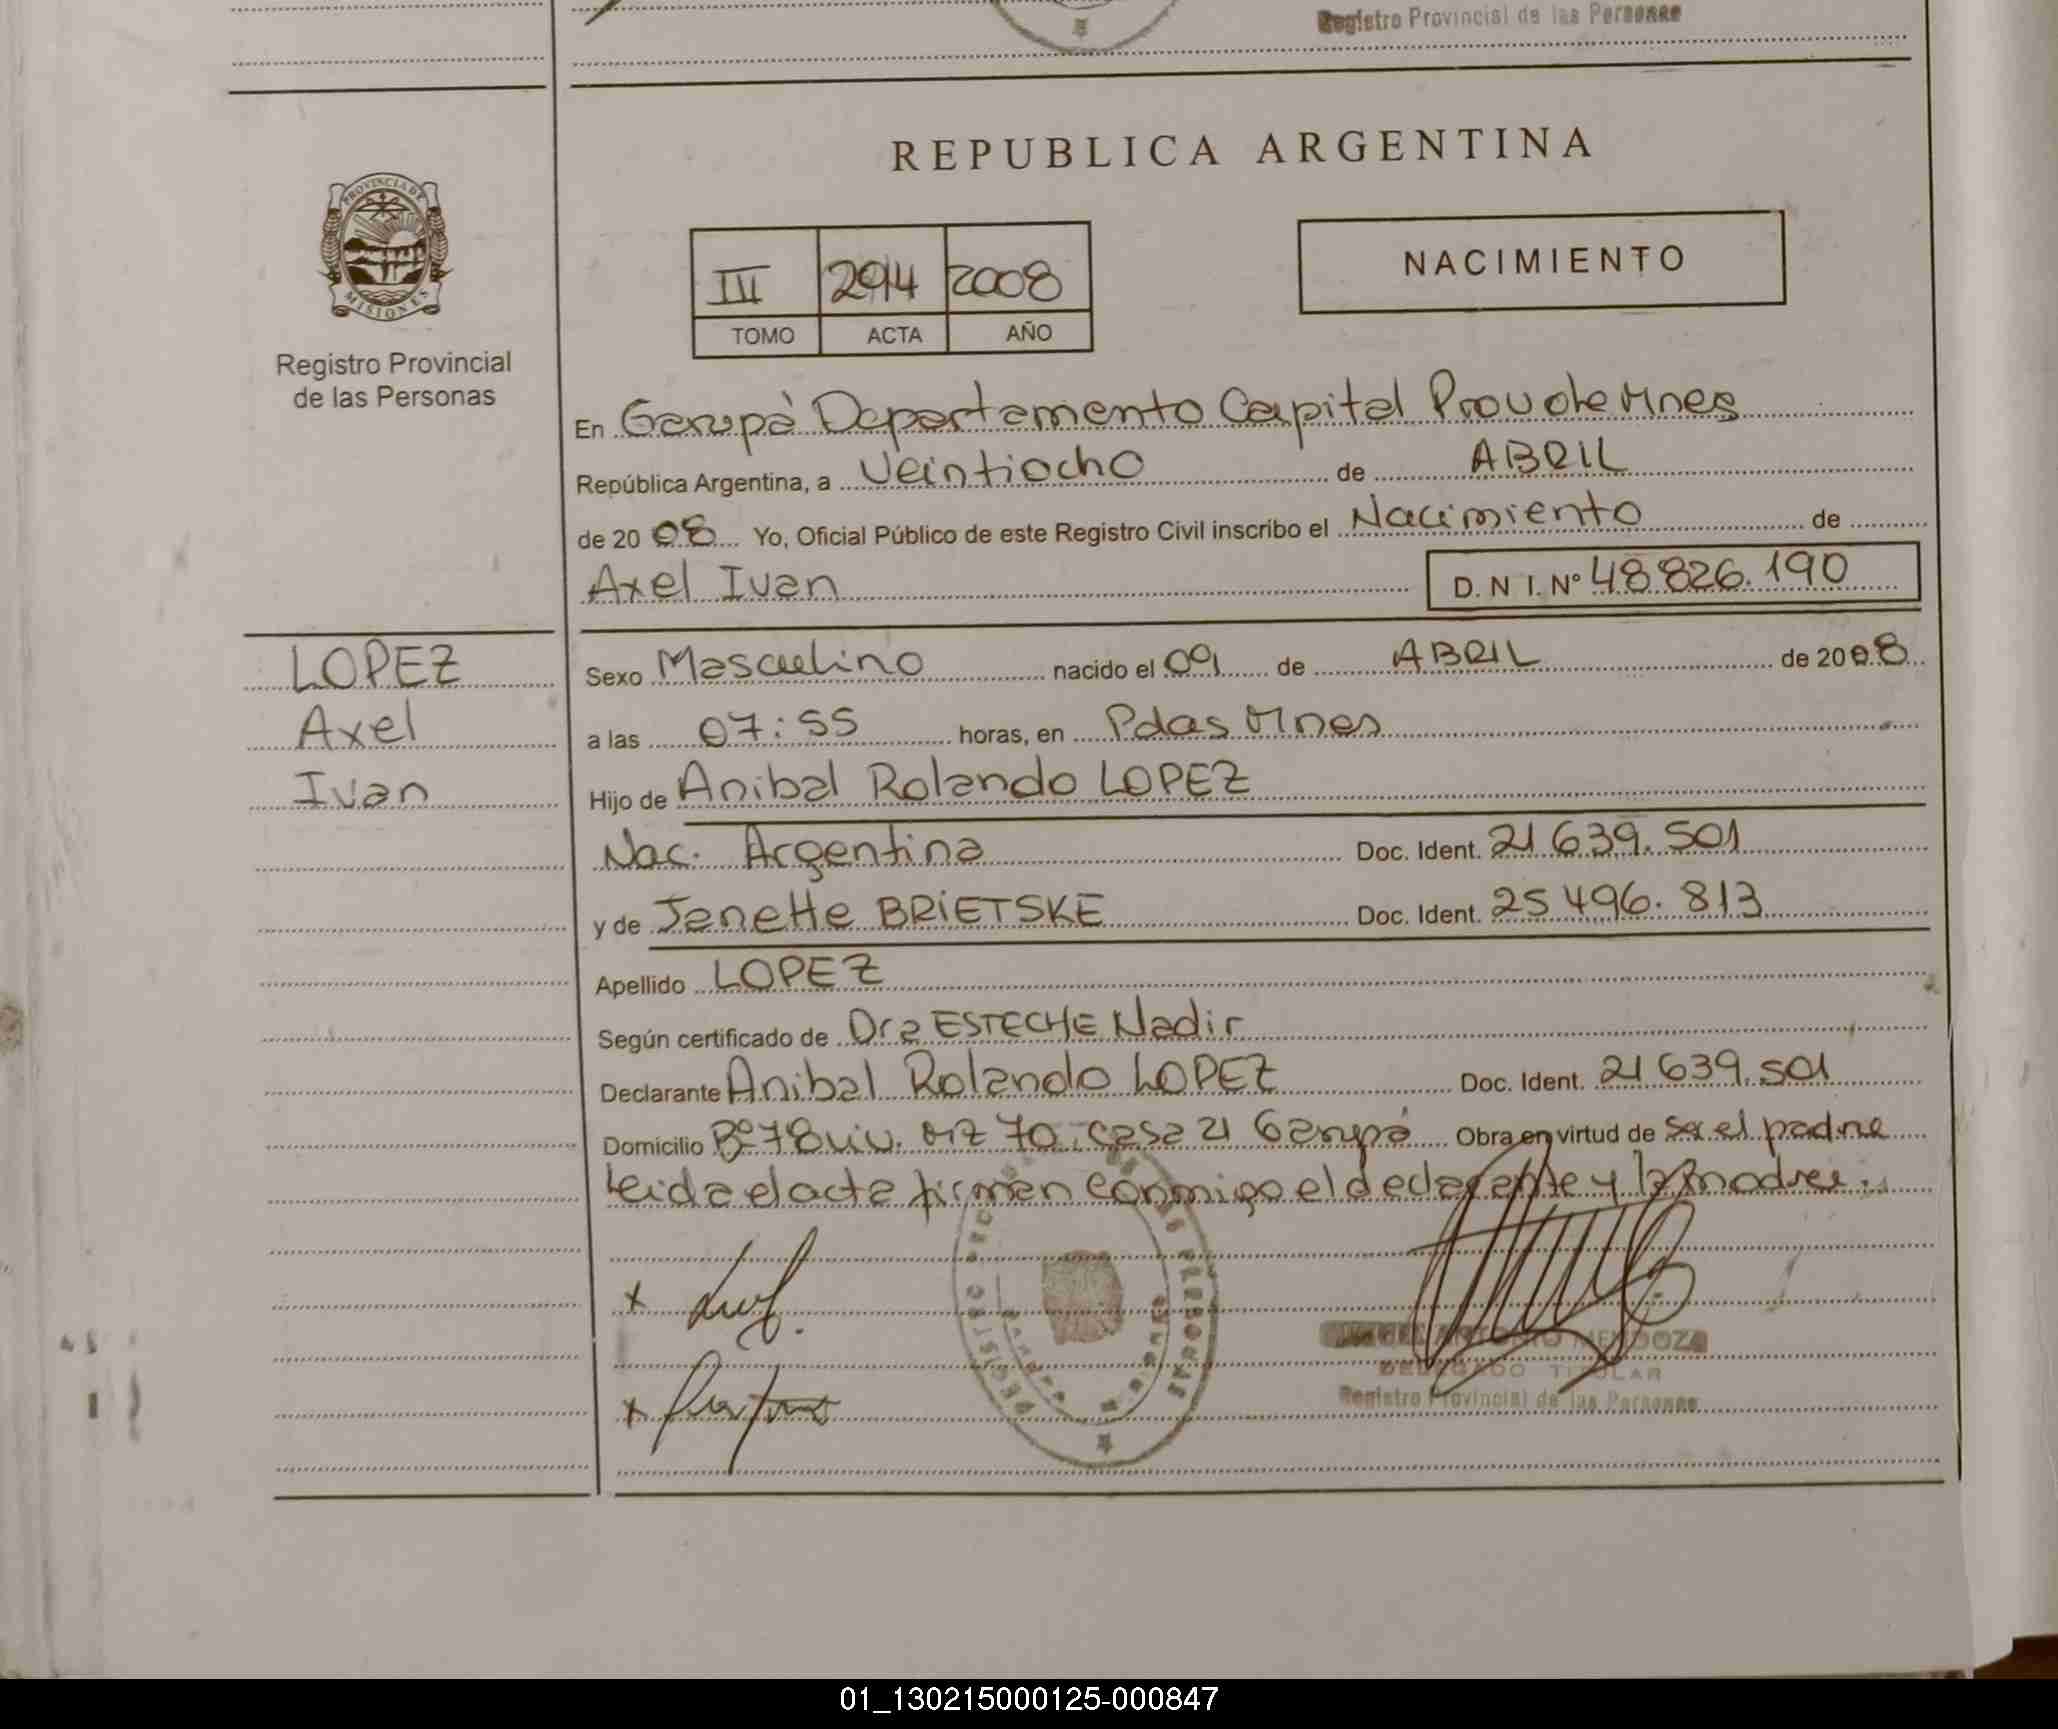 Registro Provincial de las Personas
PROVINCIA DE
MISIONES
Registro Provincial
de las Personas
REPUBLICA ARGENTINA
III 294 2008
TOMO ACTA AÑO
NACIMIENTO
En Garupà Departamento Capital Prov de Mnes
República Argentina, a Veintiocho de ABRIL
de 20 08 Yo, Oficial Público de este Registro Civil inscribo el Nacimiento de
Axel Ivan D.N I. Nº 48 826.190
LOPEZ
Axel
Ivan
Sexo Masculino nacido el 09 de ABRIL de 20 08
a las 07:55 horas, en Pdas Mnes
Hijo de Anibal Rolando LOPEZ
Nac. Argentina Doc. Ident. 21 639.501
y de Janette BRIETSKE Doc. Ident. 25 496.813
Apellido LOPEZ
Según certificado de Dra ESTECHE Nadir
Declarante Anibal Rolando LOPEZ Doc. Ident. 21 639.501
Domicilio Bº 78 viv. Mz 70 casa 21 Garupá Obra en virtud de ser el padre
Leida el acta firman conmigo el declarante y la madre.
ANTONIO MENDOZA
DELEGADO TITULAR
Registro Provincial de las Personas
01_130215000125-000847